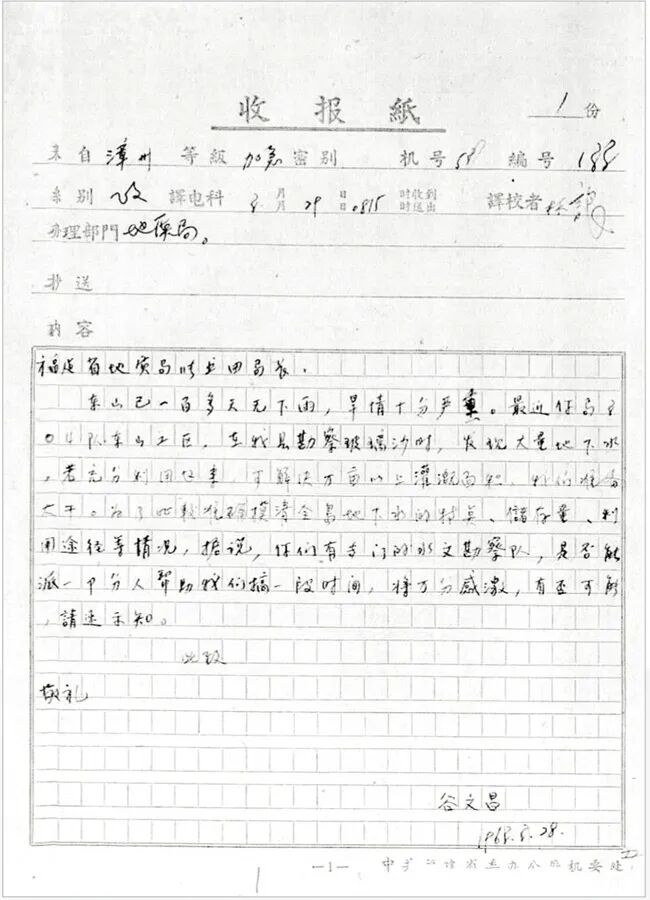 收报紙
1 份
来自 漳州 等級 加急 密别 机号 58 編号 188
系别 政 譯电科 月 日 时收到
月 29 日 0815 时送出 譯校者 林
办理部門 地质局。
抄送
内容
福建省地质局 田局长.
东山已一百多天无下雨，旱情十分严重。最近你局
04队东山工区，在我县勘察玻璃沙时，发现大量地下水
，若充分利用起来，可解决万亩以上灌溉面积，我们准备
大干。为了 较准确摸清全島地下水的特点、儲存量、利
用途径等情况，据说，你们有专门的水文勘察队，是否能
派一部分人帮助我们搞一段时间，将万分感激，有否可能
，請速示知。
此致
敬礼
谷文昌
28.
—1— 中共福建省委办公厅机要处